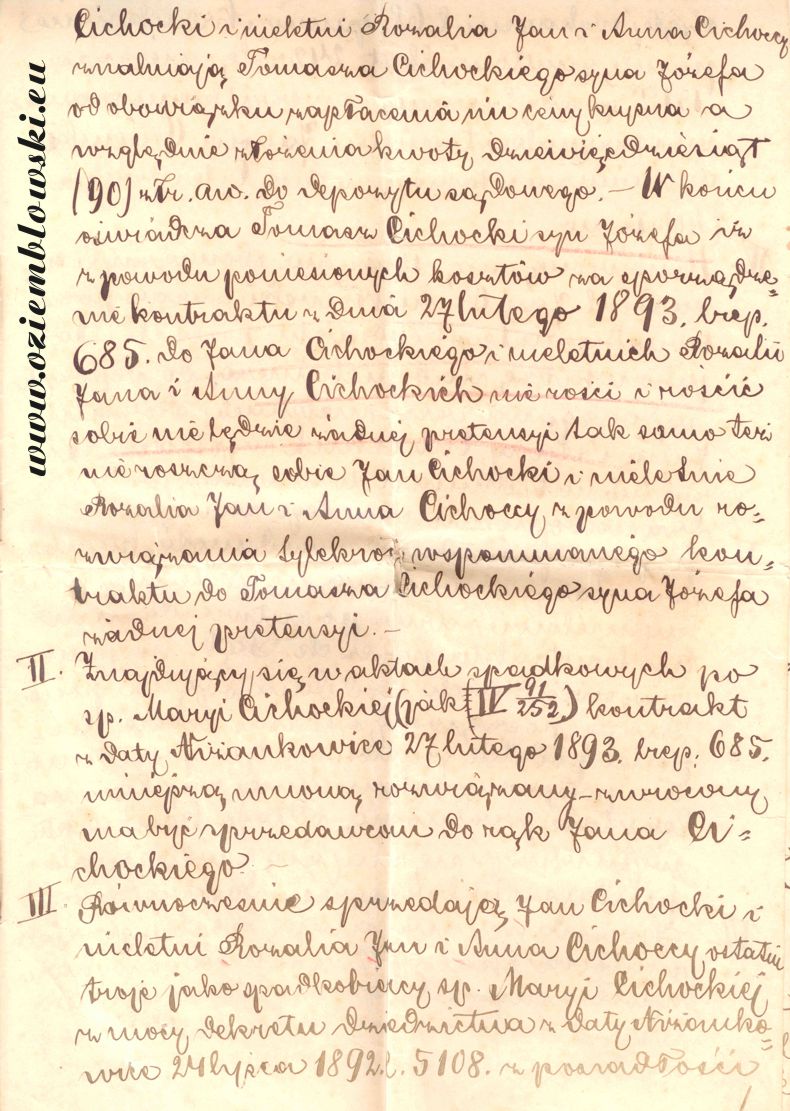 www.oziemblowski.eu
Cichocki i nieletni Rozalia Jan i Anna Cichoccy
zwalniają Tomasza Cichockiego syna Józefa
od obowiązku zapłacenia mu ceny kupna a
względnie złożenia kwoty dziewięćdziesiąt
(90) złr. aw. do depozytu sądowego. – W końcu
oświadcza Tomasz Cichocki syn Józefa iż
z powodu poniesionych kosztów za sporządze=
nie kontraktu z dnia 27 lutego 1893. lrep.
685. do Jana Cichockiego i nieletnich Rozalii
Jana i Anny Cichockich nie rości i rościć
sobie nie będzie żadnej pretensyi tak samo też
nie roszczą sobie Jan Cichocki i nieletnie
Rozalia Jan i Anna Cichoccy z powodu ro=
związania tylekroć wspomnianego kon=
traktu do Tomasza Cichockiego syna Józefa
żadnej pretensyi. –
II. Znajdujący się w aktach spadkowych po
sp. Maryi Cichockiej (jak IV 91/252) kontrakt
z daty Niżankowice 27 lutego 1893. lrep. 685.
niniejszą umową rozwiązany – zwrócony
ma być sprzedawcom do rąk Jana Ci=
chockiego –
III. Równocześnie sprzedają Jan Cichocki i
nieletni Rozalia Jan i Anna Cichoccy ostatni
troje jako spadkobiercy sp. Maryi Cichockiej
z mocy dekretu dziedzictwa z daty Niżanko=
wice 24 lipca 1892. l. 5108. z posiadłości